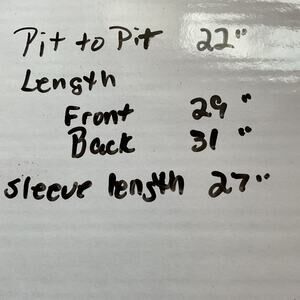 Pit to Pit 22"
Length
Front 29"
Back 31"
Sleeve length 27"